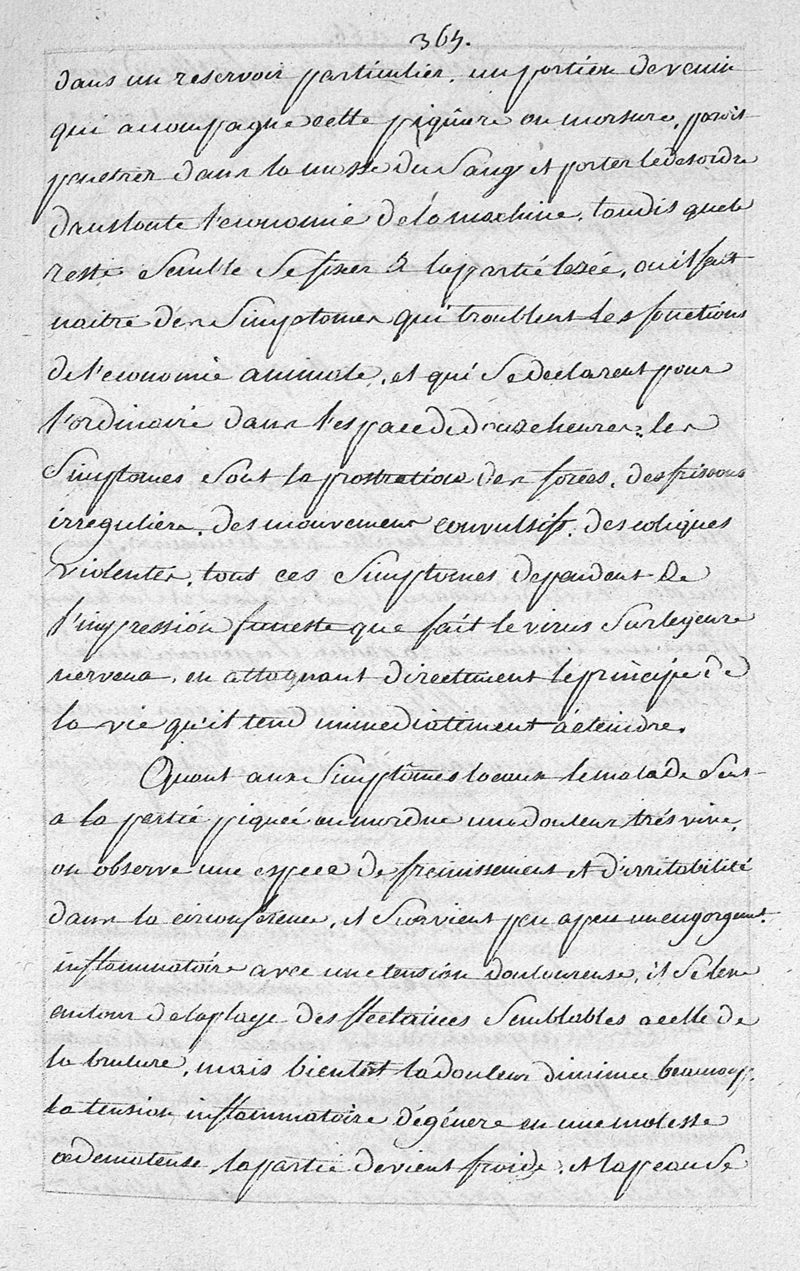 365.
dans un reservoir particulier. un portion de venin
qui acompagne cette piqûure ou morsure, paroit
penetrer dans la masse du Sang et porter le desordre
dans toute l'economie de la machine, tandis que le
reste Semble Se fixer à la partié lezée, ou il fait
naitre des Simptomes qui troublent les fonctions
de l'economie animale, et qui Se declarent pour
l'ordinaire dans l'espace de douze heures: les
Simptomes Sont la prostration des forces, des frissons
irreguliers, des mouvemens convulsifs, des coliques
violentes, tous ces Simptomes dependent de
l'impression funeste que fait le virus Sur le genre
nerveux, en attaquant directement le principe de
la vie qu'il tend immediatement à eteindre.
Quant aux Simptômes locaux le malade Sent
a la partié piqueé ou mordue une douleur très vive,
on observe une espece de fremissement et d'irritabilité
dans la circonference, il Survient peu a peu un engorgemt.
inflammatoire avec une tension douloureuse, il Se leve
autour de la playe des flictaines Semblables a celle de
la brulure, mais bientôt la douleur diminue beaucoup,
la tension inflammatoire dégénere en une molesse
œdemateuse, la partie devient froide, et la peau Se